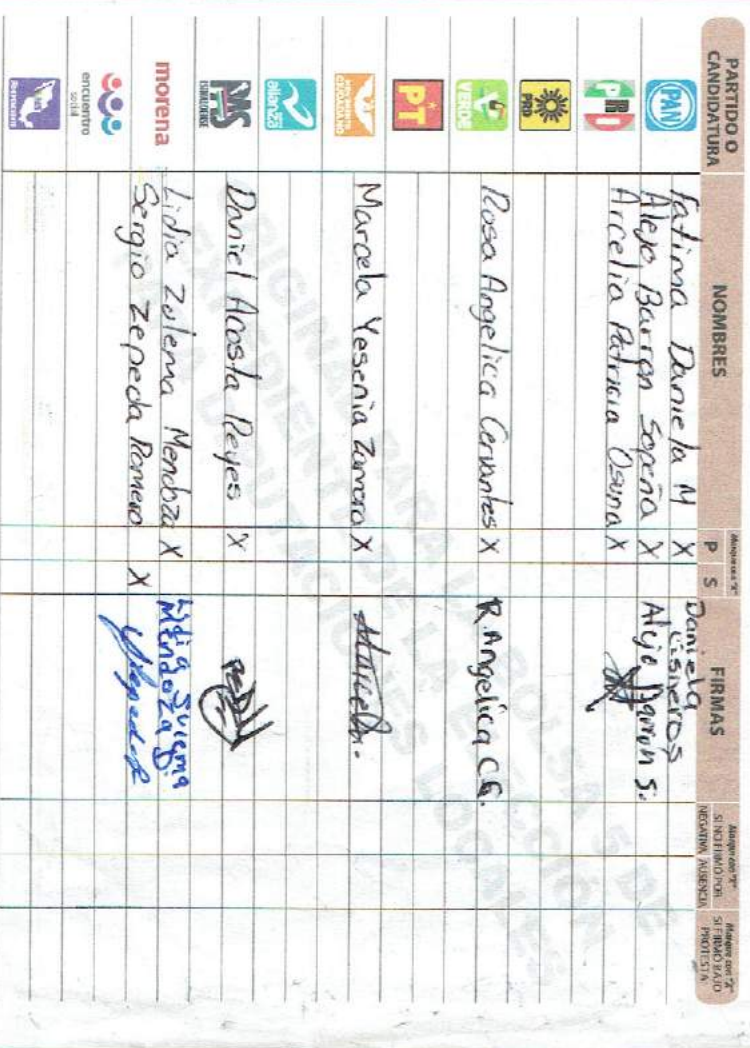 PARTIDO O
CANDIDATURA
NOMBRES
Marque con "X"
P S
FIRMAS
Marque con "X"
SI NO FIRMÓ POR
NEGATIVA AUSENCIA
Marque con "X"
SI FIRMÓ BAJO
PROTESTA
PAN
Fatima Daniela M X Daniela Cisneros
Alejo Barron Sopeña X Alejo Barron S.
PRI
Arcelia Patricia Osuna X
PRD
VERDE
Rosa Angelica Cervantes X R. Angelica C.G.
PT
MOVIMIENTO
CIUDADANO
Marcela Yesenia Zamora X Marcela
alianza
PAS
SINALOENSE
Daniel Acosta Reyes X
morena
Lidia Zulema Mendoza X Lidia Zulema
Mendoza
Sergio Zepeda Romero X
encuentro
social
ORIGINAL PARA LA BOLSA 5 DE
EXPEDIENTE DE LA ELECCIÓN
PARA DIPUTACIONES LOCALES